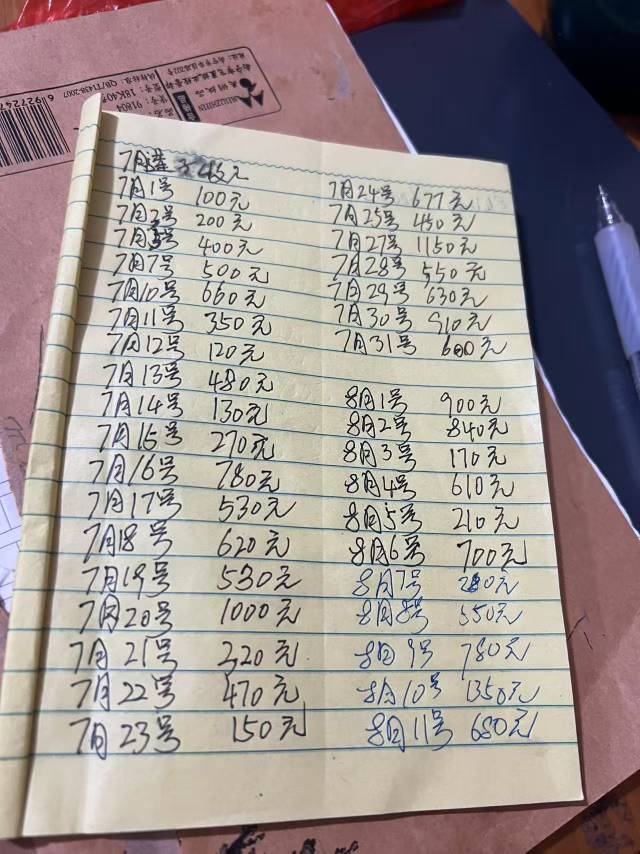 7月1号 100元
7月3号 200元
7月5号 400元
7月7号 500元
7月10号 660元
7月11号 350元
7月12号 120元
7月13号 480元
7月14号 130元
7月15号 270元
7月16号 780元
7月17号 530元
7月18号 620元
7月19号 530元
7月20号 1000元
7月21号 220元
7月22号 470元
7月23号 150元
7月24号 677元
7月25号 450元
7月27号 1150元
7月28号 550元
7月29号 630元
7月30号 910元
7月31号 600元
8月1号 900元
8月2号 840元
8月3号 170元
8月4号 610元
8月5号 210元
8月6号 700元
8月7号 280元
8月8号 550元
8月9号 780元
8月10号 1350元
8月11号 680元
QB/T1438-2007